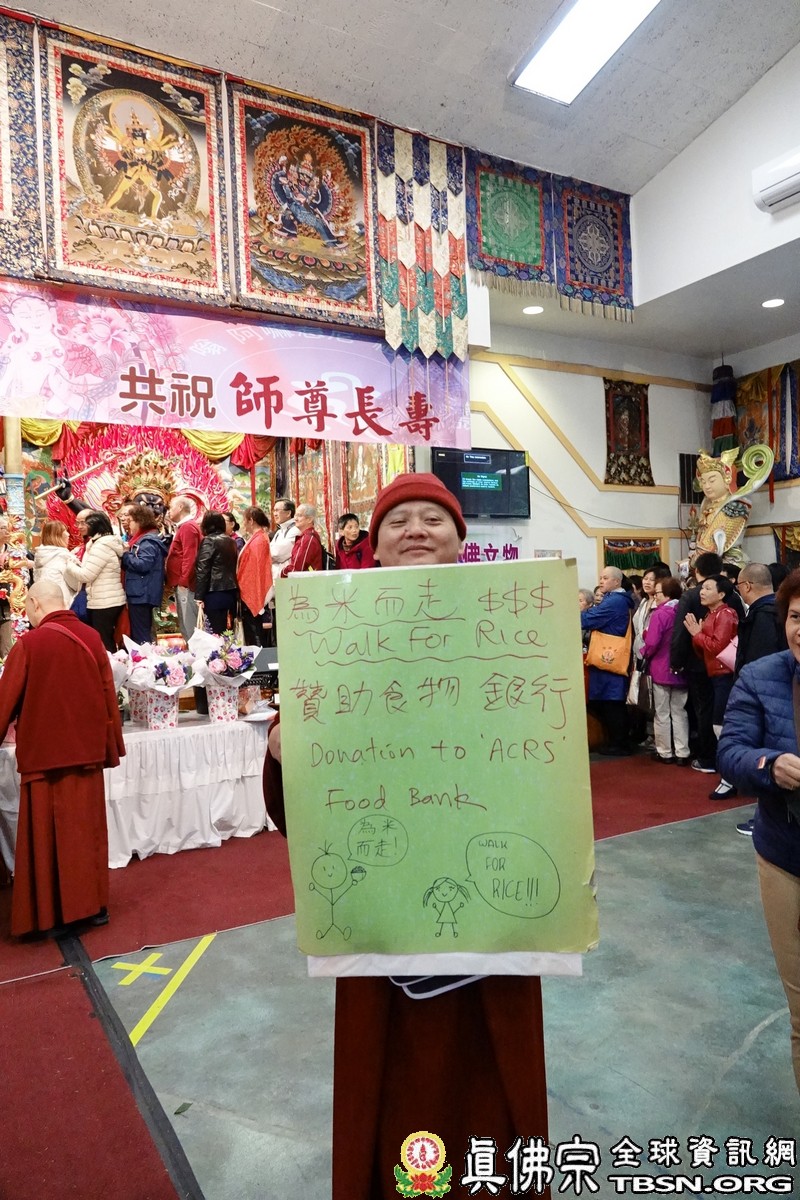 共祝師尊長壽
佛文物
為米而走 $$$
Walk For Rice
贊助食物 銀行
Donation to 'ACRS'
Food Bank
為米
而走!
WALK
FOR
RICE!!!
真佛宗 全球資訊網
TBSN.ORG